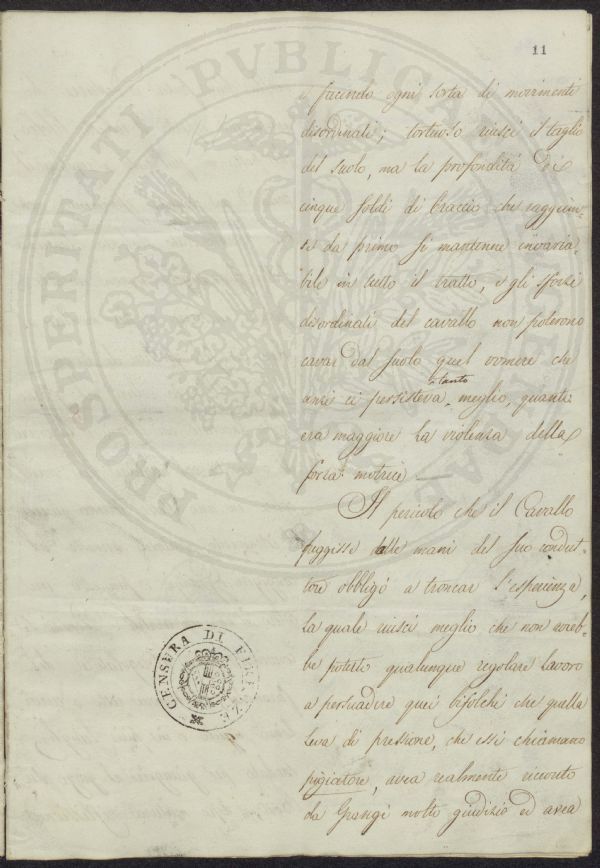 11
e facendo ogni sorta di movimenti
disordinati; tortuoso riuscì il taglio
del suolo, ma la profondità di
cinque soldi di braccio che raggiun-
se da primo si mantenne invaria-
bile in tutto il tratto, e gli sforzi
disordinati del cavallo non poterono
cavar dal suolo quel vomere che
tanto
anzi ci persisteva meglio, quanto
era maggiore la violenza della
forza motrice
Il pericolo che il Cavallo
fuggisse dalle mani del suo condut-
tore obbligò a troncar l'esperienza,
la quale riuscì meglio che non avreb-
be potuto qualunque regolare lavoro
a persuadere quei bifolchi che quella
leva di pressione, che essi chiamano
pigiatore, avea realmente ricevuto
da Grangé molto giudizio ed avea
CENSURA DI FIRENZE
PROSPERITATI PUBLICAE